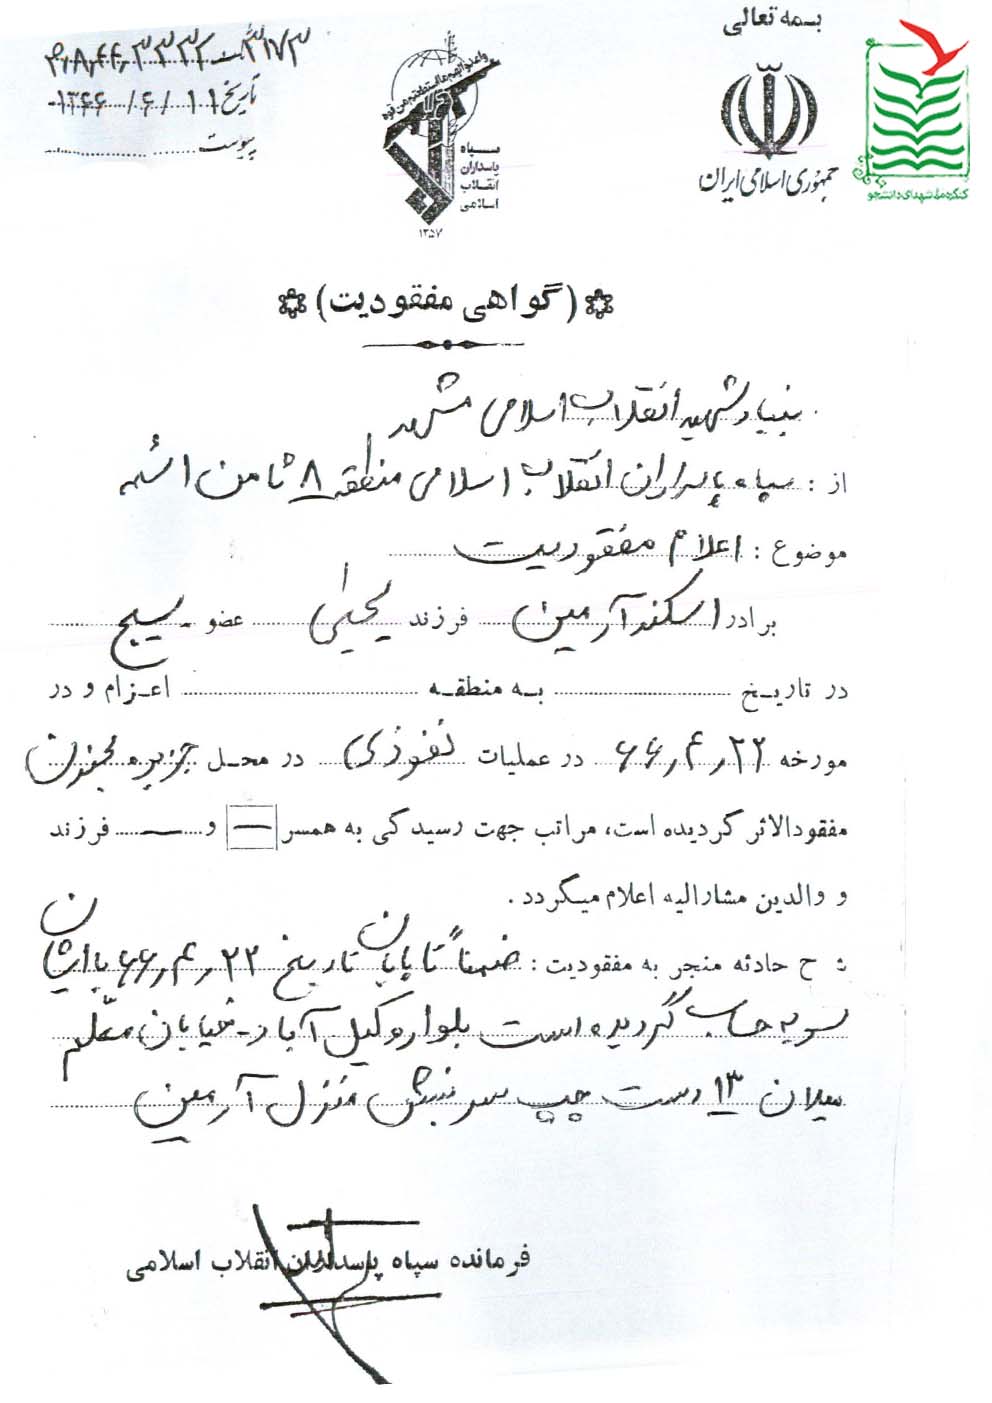 بسمه تعالی
جمهوری اسلامی ایران
کنگره ملی شهدای دانشجو
سپاه
پاسداران
انقلاب
اسلامی
۱۳۵۷
تاریخ ۱۳۶۶/۶/۱۱
پیوست
(گواهی مفقودیت)
بنیاد شهید انقلاب اسلامی مشهد
از : سپاه پاسداران انقلاب اسلامی منطقه ۸ ثامن الائمه
موضوع : اعلام مفقودیت
برادر اسکند آرمین فرزند یحیی عضو بسیج
در تاریخ به منطقه اعزام و در
مورخه ۶۶٫۴٫۲۲ در عملیات نفوذی در محل جزیره مجنون
مفقودالاثر گردیده است، مراتب جهت رسیدگی به همسر — و — فرزند
و والدین مشارالیه اعلام میگردد .
ح حادثه منجر به مفقودیت : ضمناً تا پایان تاریخ ۶۶٫۴٫۲۲ با ایشان
تسویه حساب گردیده است بلوار وکیل آباد - خیابان معلم
میلان ۱۳ دست چپ سر نبش منزل آرمین
فرمانده سپاه پاسداران انقلاب اسلامی